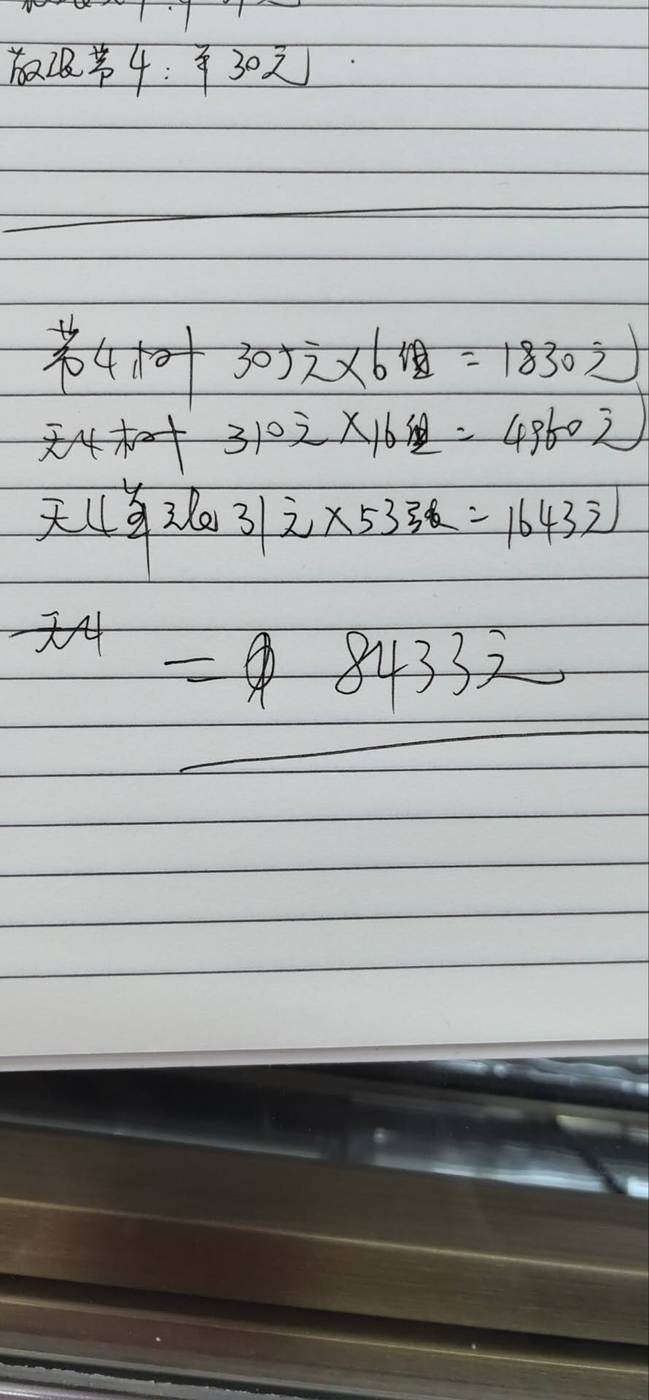 放汲苐4：羊30元
苐4树 305元×6组=1830元
天4树 310元×16组=4960元
天4单 31元×53张=1643元
天4
= 8433元